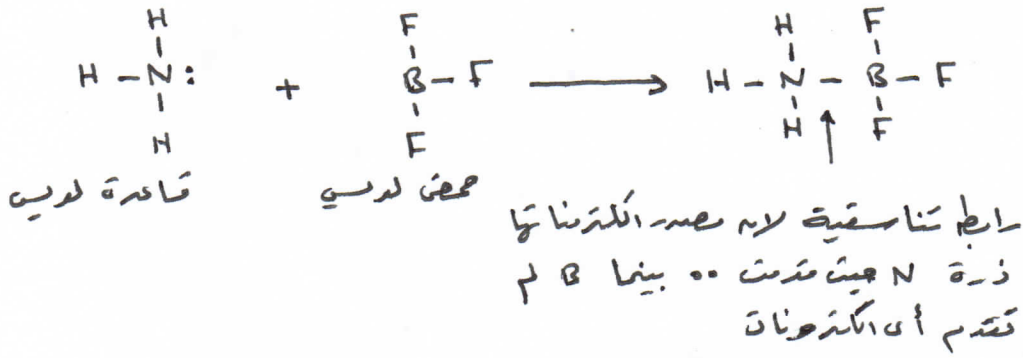 H H F
H – N : + B – F ⟶ H – N – B – F
H F H F
قاعدة لويس حمض لويس
رابط تناسقية لان مصدر الكتروناتها
ذرة N حيث قدمت •• بينما B لم
تقدم أى الكترونات